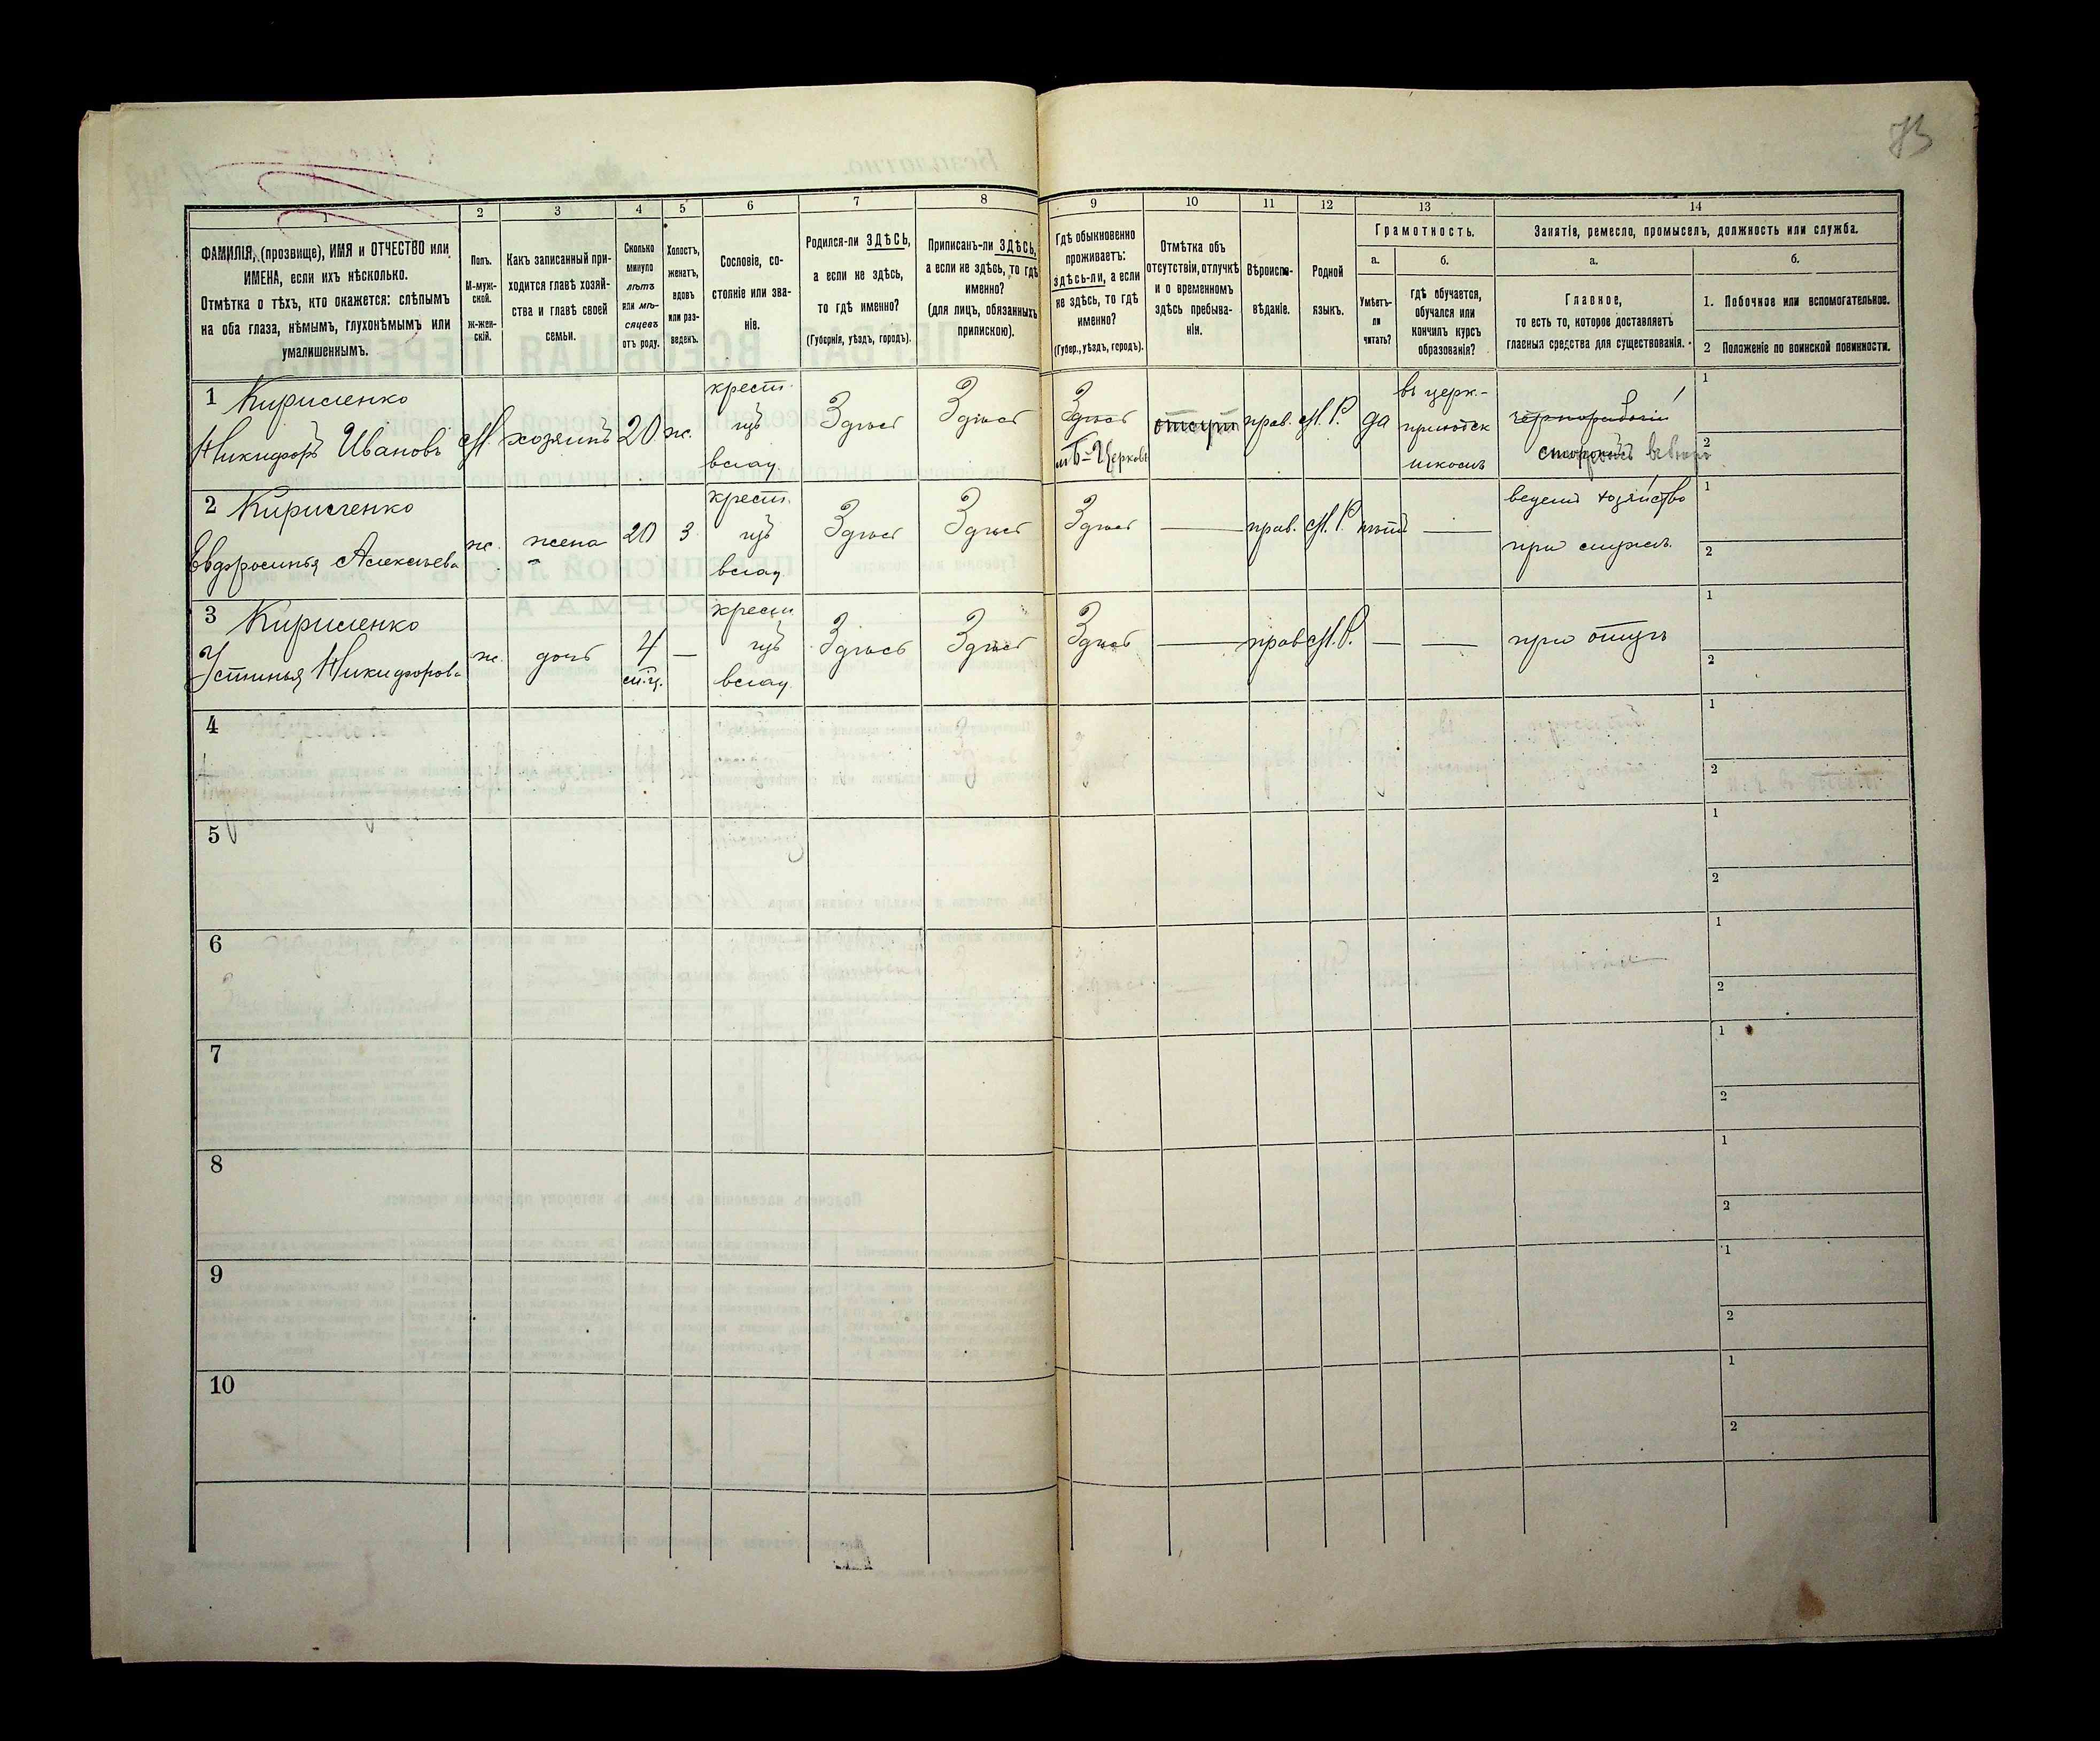 1
2
3
4
5
6
7
8
9
10
11
12
13
14
ФАМИЛІЯ, (прозвище), ИМЯ и ОТЧЕСТВО или
ИМЕНА, если ихъ нѣсколько.
Отмѣтка о тѣхъ, кто окажется: слѣпымъ
на оба глаза, нѣмымъ, глухонѣмымъ или
умалишеннымъ.
Полъ.
М-муж-
ской.
ж-жен-
скій.
Какъ записанный при-
ходится главѣ хозяй-
ства и главѣ своей
семьи.
Сколько
минуло
лѣтъ
или мѣ-
сяцевъ
отъ роду.
Холостъ,
женатъ,
вдовъ
или раз-
веденъ.
Сословіе, со-
стояніе или зва-
ніе.
Родился-ли ЗДѢСЬ,
а если не здѣсь,
то гдѣ именно?
(Губернія, уѣздъ, городъ).
Приписанъ-ли ЗДѢСЬ,
а если не здѣсь, то гдѣ
именно?
(для лицъ, обязанныхъ
припискою).
Гдѣ обыкновенно
проживаетъ:
здѣсь-ли, а если
не здѣсь, то гдѣ
именно?
(Губер., уѣздъ, городъ).
Отмѣтка объ
отсутствіи, отлучкѣ
и о временномъ
здѣсь пребыва-
ніи.
Вѣроиспо-
вѣданіе.
Родной
языкъ.
Грамотность.
а.
Умѣетъ-
ли
читать?
б.
гдѣ обучается,
обучался или
кончилъ курсъ
образованія?
Занятіе, ремесло, промыселъ, должность или служба.
а.
Главное,
то есть то, которое доставляетъ
главныя средства для существованія.
б.
1. Побочное или вспомогательное.
2 Положеніе по воинской повинности.
1 Кириленко
Никифоръ Ивановъ
М.
хозяинъ
20
ж.
крест.
изъ
влад.
Здѣсь
Здѣсь
Здѣсь
м Б-Церковь
отсут
прав.
М. Р.
да
въ церк.-
приходск
школѣ
чернорабочій
1
2
2 Кириленко
Евфросинья Алексѣева
ж.
жена
20
3
крест.
изъ
влад
Здѣсь
Здѣсь
Здѣсь
прав.
М. Р.
нѣтъ
ведетъ хозяйство
при мужѣ.
1
2
3 Кириленко
Устинья Никифорова
ж.
дочь
4
крест
изъ
влад.
Здѣсь
Здѣсь
Здѣсь
прав
М. Р.
при отцѣ
1
2
4
1
2
5
1
2
6
1
2
7
1
2
8
1
2
9
1
2
10
1
2